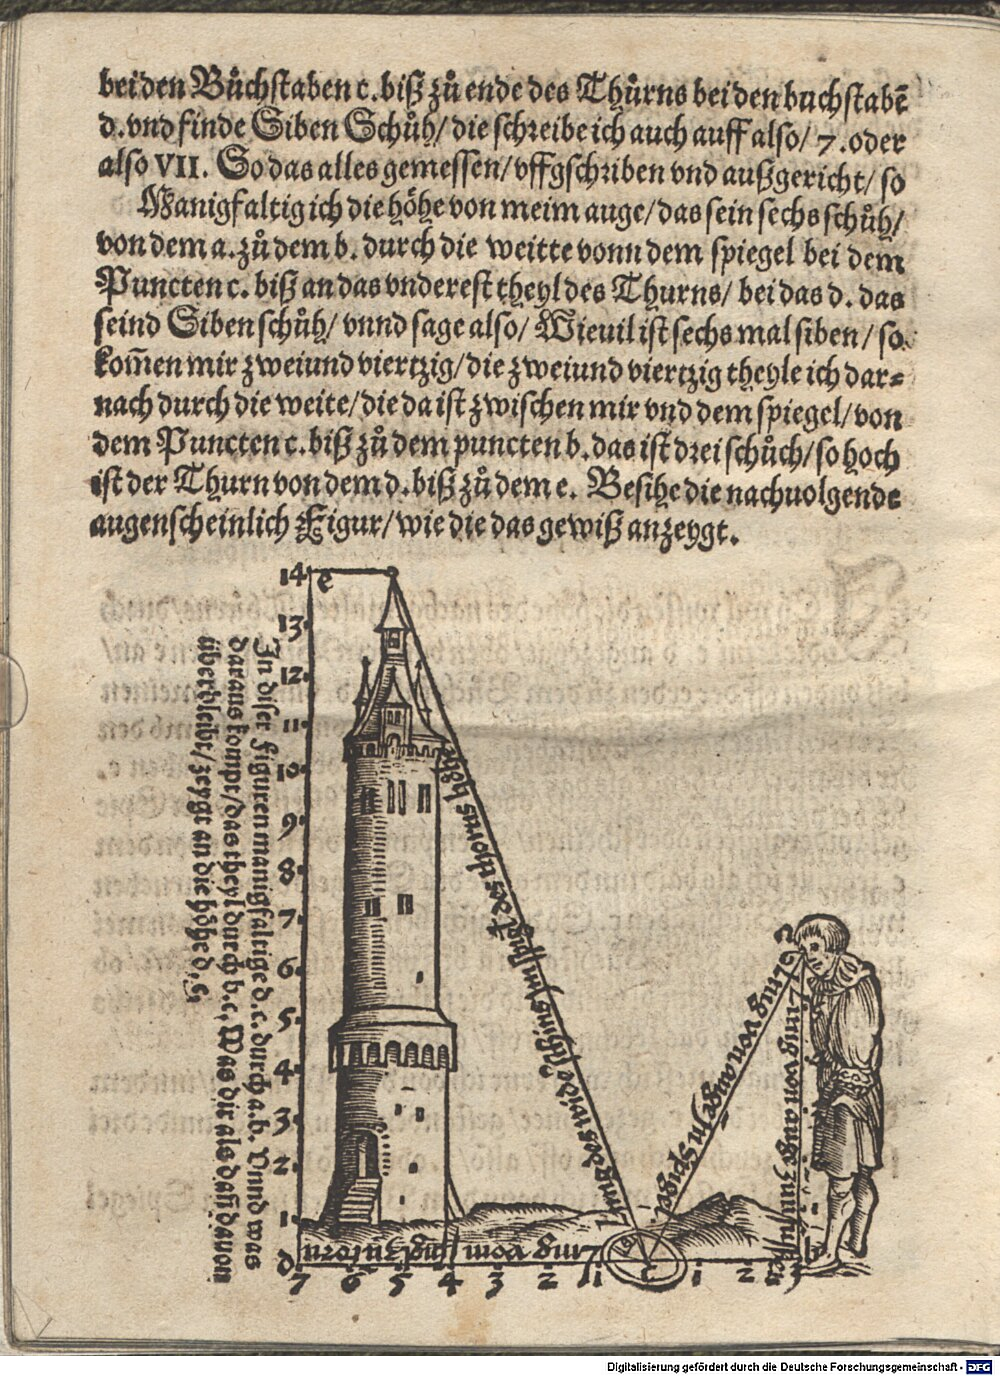 bei den Bůchstaben c. biß zů ende des Thůrns bei den bůchstabẽ
d. vnd finde Siben Schůh/ die schreibe ich auch auff also/ 7. oder
also VII. So das alles gemessen/ vffgschriben vnd außgericht/ so
Manigfaltig ich die höhe von meim auge/ das sein sechs schůh/
von dem a. zů dem b. durch die weitte vonn dem spiegel bei dem
Puncten c. biß an das vnderest theyl des Thurns/ bei das d. das
seind Siben schůh/ vnnd sage also/ Wieuil ist sechs mal siben/ so
kom̃en mir zweiund viertzig/ die zweiund viertzig theyle ich dar⸗
nach durch die weite/ die da ist zwischen mir vnd dem spiegel/ von
dem Puncten c. biß zů dem puncten b. das ist drei schůch/ so hoch
ist der Thurn von dem d. biß zů dem e. Besihe die nachuolgende
augenscheinlich Figur/ wie die das gewiß anzeygt.
14 e
13
12
11
10
9
8
7
6
5
4
3
2
1
d
7 6 5 4 3 2 1 c 1 2 3
In diser Figuren manigfaltige d.c. durch a.b. Vnnd was
daraus kompt/ das theyl durch b.c. Was dir als dañ dauon
überbleibt/ zeygt an die höhe d.e.
Leng des widerschins im spiegel des thorns höhe
Leng von auge ins spigel
Leng von auge zun fussen
Leng vom spigel zum torn
a
b
Digitalisierung gefördert durch die Deutsche Forschungsgemeinschaft - DFG